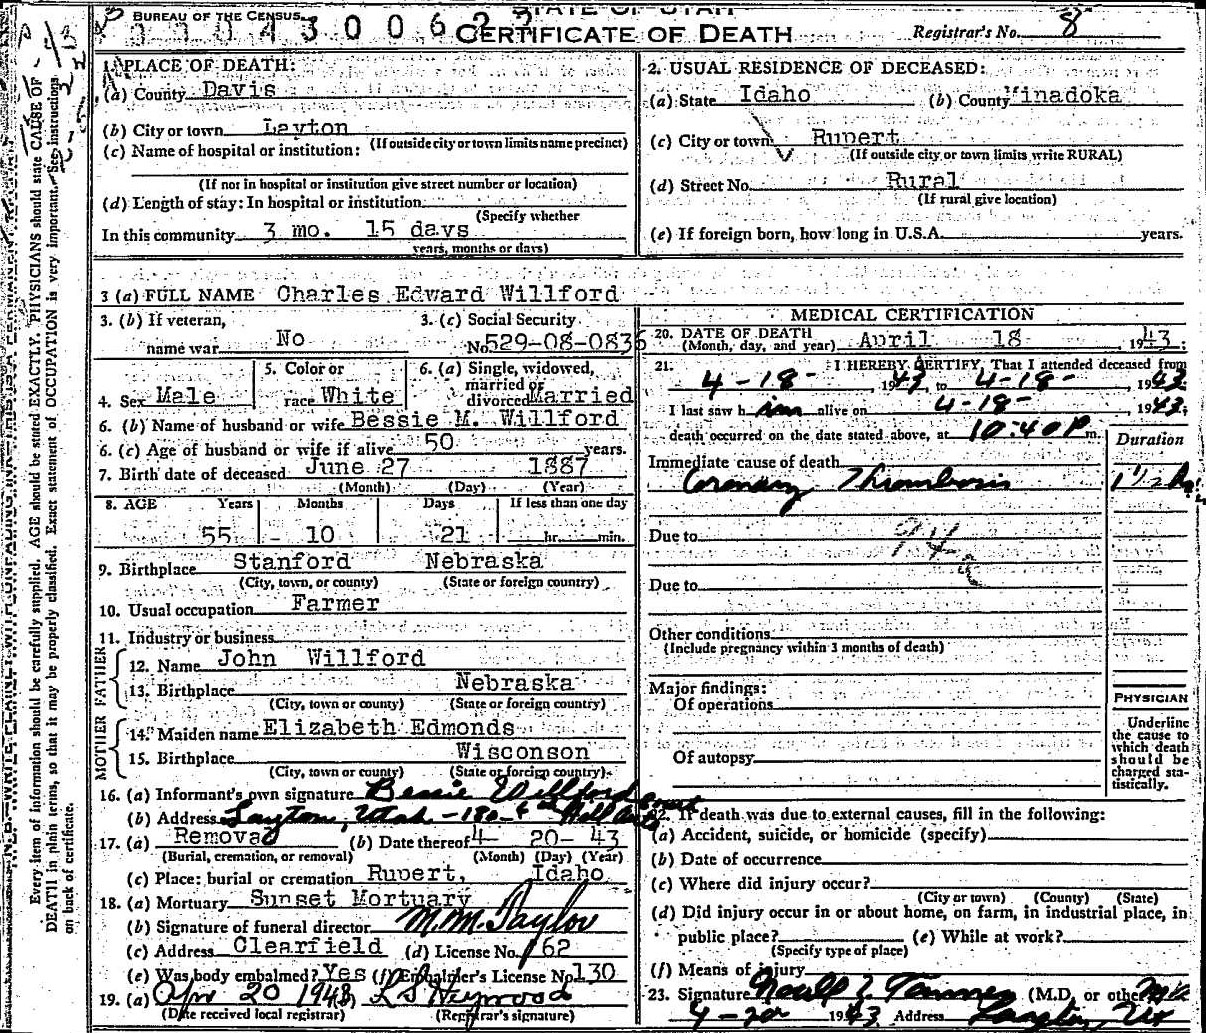 BUREAU OF THE CENSUS
STATE OF UTAH
CERTIFICATE OF DEATH
Registrar's No. 8
1. PLACE OF DEATH:
(a) County Davis
(b) City or town Layton
(If outside city or town limits name precinct)
(c) Name of hospital or institution:
(If not in hospital or institution give street number or location)
(d) Length of stay: In hospital or institution
(Specify whether
In this community 3 mo. 15 days
years, months or days)
2. USUAL RESIDENCE OF DECEASED:
(a) State Idaho (b) County Minadoka
(c) City or town Rupert
(If outside city or town limits write RURAL)
(d) Street No. Rural
(If rural give location)
(e) If foreign born, how long in U.S.A. years.
3 (a) FULL NAME Charles Edward Willford
3. (b) If veteran, name war No
3. (c) Social Security No. 529-08-0836
4. Sex Male
5. Color or race White
6. (a) Single, widowed, married or divorced Married
6. (b) Name of husband or wife Bessie M. Willford
6. (c) Age of husband or wife if alive 50 years.
7. Birth date of deceased June 27 1887
(Month) (Day) (Year)
8. AGE Years Months Days If less than one day
55 10 21 hr. min.
9. Birthplace Stanford Nebraska
(City, town, or county) (State or foreign country)
10. Usual occupation Farmer
11. Industry or business
FATHER
12. Name John Willford
13. Birthplace Nebraska
(City, town or county) (State or foreign country)
MOTHER
14. Maiden name Elizabeth Edmonds
15. Birthplace Wisconson
(City, town or county) (State or foreign country)
16. (a) Informant's own signature Bessie Willford
(b) Address Layton, Utah - 180 - Court
17. (a) Removal (b) Date thereof 4- 20- 43
(Burial, cremation, or removal) (Month) (Day) (Year)
(c) Place: burial or cremation Rupert, Idaho
18. (a) Mortuary Sunset Mortuary
(b) Signature of funeral director M. M. Taylor
(c) Address Clearfield (d) License No. 162
(e) Was body embalmed? Yes (f) Embalmer's License No. 130
19. (a) Apr 20 1943 L S Heywood
(Date received local registrar) (Registrar's signature)
MEDICAL CERTIFICATION
20. DATE OF DEATH
(Month, day, and year) April 18, 1943;
21. I HEREBY CERTIFY, That I attended deceased from
4-18-, 1943, to 4-18-, 1943;
I last saw him alive on 4-18-, 1943;
death occurred on the date stated above, at 10:40 P m.
Duration
Immediate cause of death
Coronary Thrombosis 1 1/2 hr
Due to
94a
Due to
Other conditions
(Include pregnancy within 3 months of death)
Major findings:
Of operations
Of autopsy
PHYSICIAN
Underline the cause to which death should be charged statistically.
22. If death was due to external causes, fill in the following:
(a) Accident, suicide, or homicide (specify)
(b) Date of occurrence
(c) Where did injury occur?
(City or town) (County) (State)
(d) Did injury occur in or about home, on farm, in industrial place, in
public place? (e) While at work?
(Specify type of place)
(f) Means of injury
23. Signature Tanner (M.D. or other
4-20 1943 Address Layton, Ut
Every item of Information should be carefully supplied. AGE should be stated EXACTLY. PHYSICIANS should state CAUSE OF
DEATH in plain terms, so that it may be properly classified. Exact statement of OCCUPATION is very important. See instructions
on back of certificate.